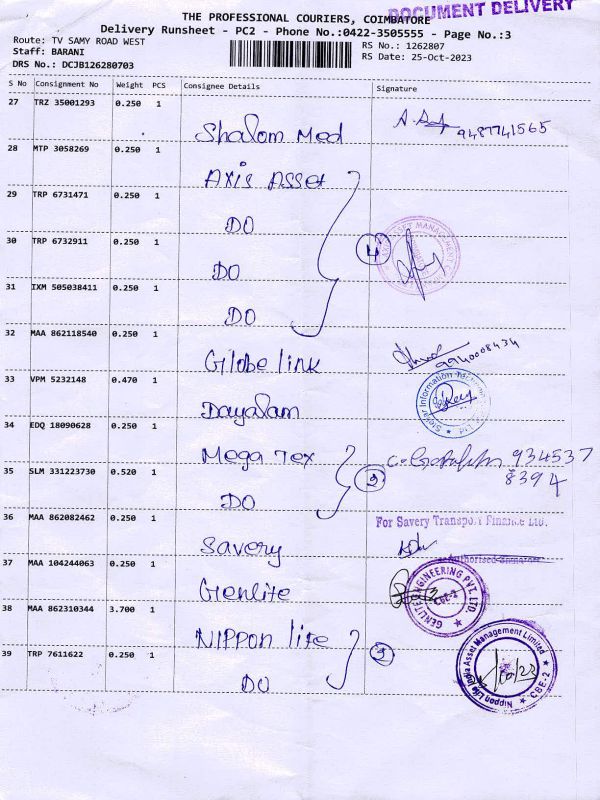 DOCUMENT DELIVERY
THE PROFESSIONAL COURIERS, COIMBATORE
Delivery Runsheet - PC2 - Phone No.:0422-3505555 - Page No.:3
Route: TV SAMY ROAD WEST
RS No.: 1262807
Staff: BARANI
RS Date: 25-Oct-2023
DRS No.: DCJB126280703
S No Consignment No Weight PCS Consignee Details Signature
27 TRZ 35001293 0.250 1
Shalom Med
9487741565
28 MTP 3058269 0.250 1
Axis Asset
29 TRP 6731471 0.250 1
DO
30 TRP 6732911 0.250 1
DO
4
31 IXM 505038411 0.250 1
DO
32 MAA 862118540 0.250 1
Globe link
9940008434
33 VPM 5232148 0.470 1
Dayalam
34 EDQ 18090628 0.250 1
Mega Tex
934537
8394
35 SLM 331223730 0.520 1
DO
2
36 MAA 862082462 0.250 1
Savery
For Savery Transport Finance Ltd.
Authorised Signatory
37 MAA 104244063 0.250 1
Genlite
GENLITE ENGINEERING PVT. LTD
CBE-2
38 MAA 862310344 3.700 1
NIPPON life
2
39 TRP 7611622 0.250 1
DO
Nippon Life India Asset Management Limited
CBE-2